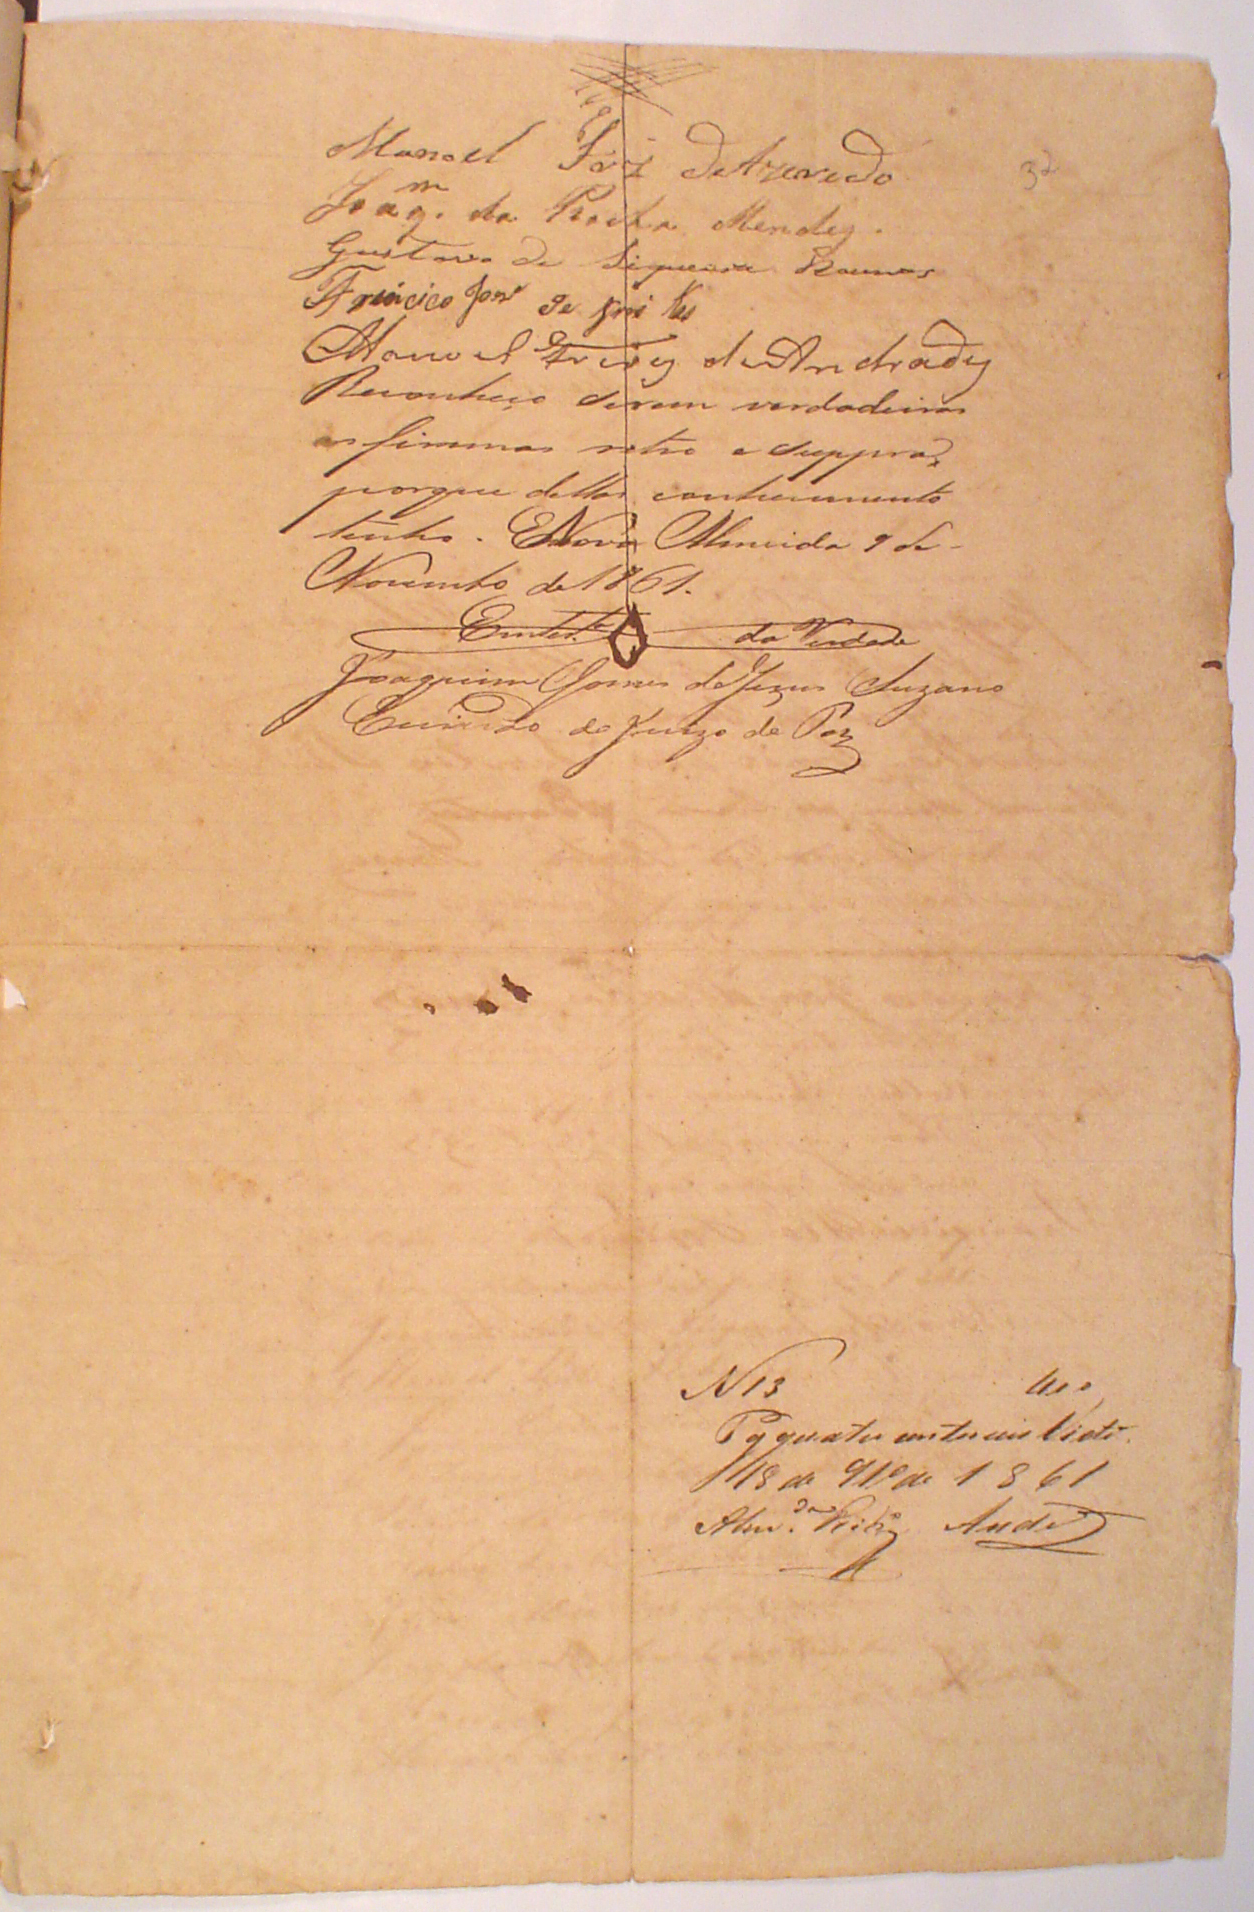 32
Manoel Frz de Azevedo
Joaqm. da Rocha Mendes.
Gustavo de Siqueira
Francisco José de
Manoel de Andrade
Reconheço serem verdadeiras
as firmas retro e suppra,
porque dellas conhecimento
tenho. Nova Almeida 9 de
Novembro de 1861.
Em test.º da Verdade
Joaquim Gomes de Jesus Suzano
Escrivão de Juizo de Paz
N 13 400
Pg quatrocentos reis Victª.
18 de 9bro de 1861